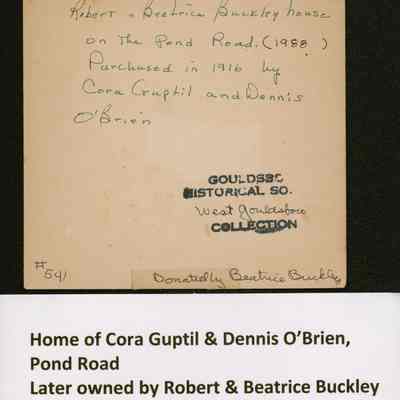 Robert & Beatrice Buckley house
on The Pond Road. (1988)
Purchased in 1916 by
Cora Guptil and Dennis
O'Brien
GOULDSBO
HISTORICAL SO.
West Gouldsboro
COLLECTION
#541
Donated by Beatrice Buckley
Home of Cora Guptil & Dennis O'Brien,
Pond Road
Later owned by Robert & Beatrice Buckley